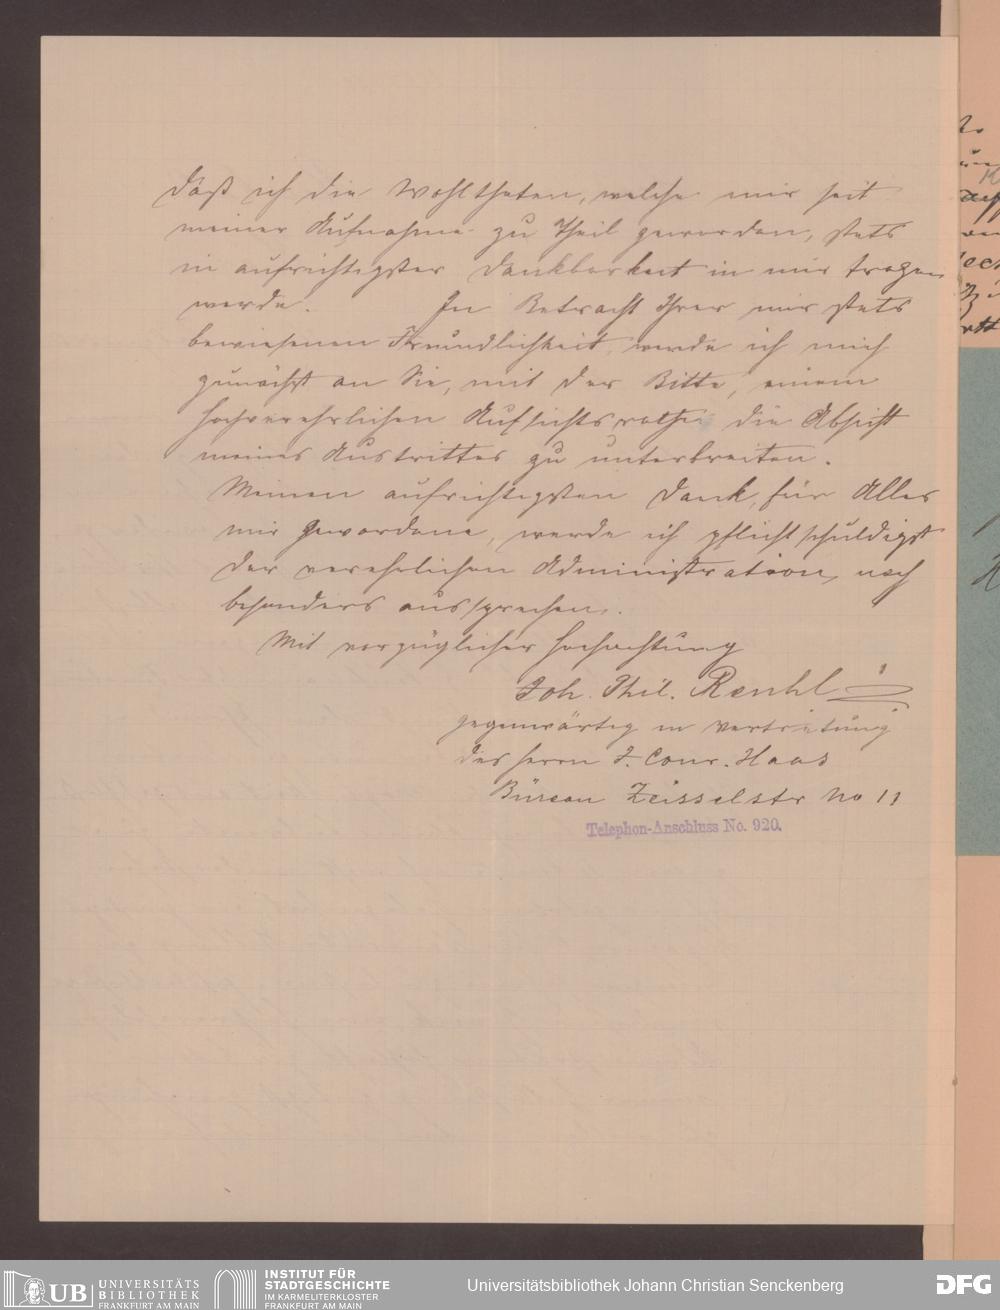 daß ich die Wohlthaten, welche mir seit
meiner Aufnahme zu Theil geworden, stets
in aufrichtigster Dankbarkeit in mir tragen
werde. In Betracht Ihrer mir stets
bewiesenen Freundlichkeit, wende ich mich
zunächst an Sie, mit der Bitte, einem
hochverehrlichen Aufsichtsrathe die Absicht
meines Austrittes zu unterbreiten.
Meinen aufrichtigsten Dank, für Alles
mir Gewordene, werde ich pflichtschuldigst
der verehrlichen Administration, noch
besonders aussprechen.
Mit vorzüglicher Hochachtung
Joh. Phil. Renhl
gegenwärtig in Vertretung
des Herrn J. Conr. Haas
Büreau Zeisselstr No 11
Telephon-Anschluss No. 920.
UB UNIVERSITÄTS
BIBLIOTHEK
FRANKFURT AM MAIN
INSTITUT FÜR
STADTGESCHICHTE
IM KARMELITERKLOSTER
FRANKFURT AM MAIN
Universitätsbibliothek Johann Christian Senckenberg
DFG